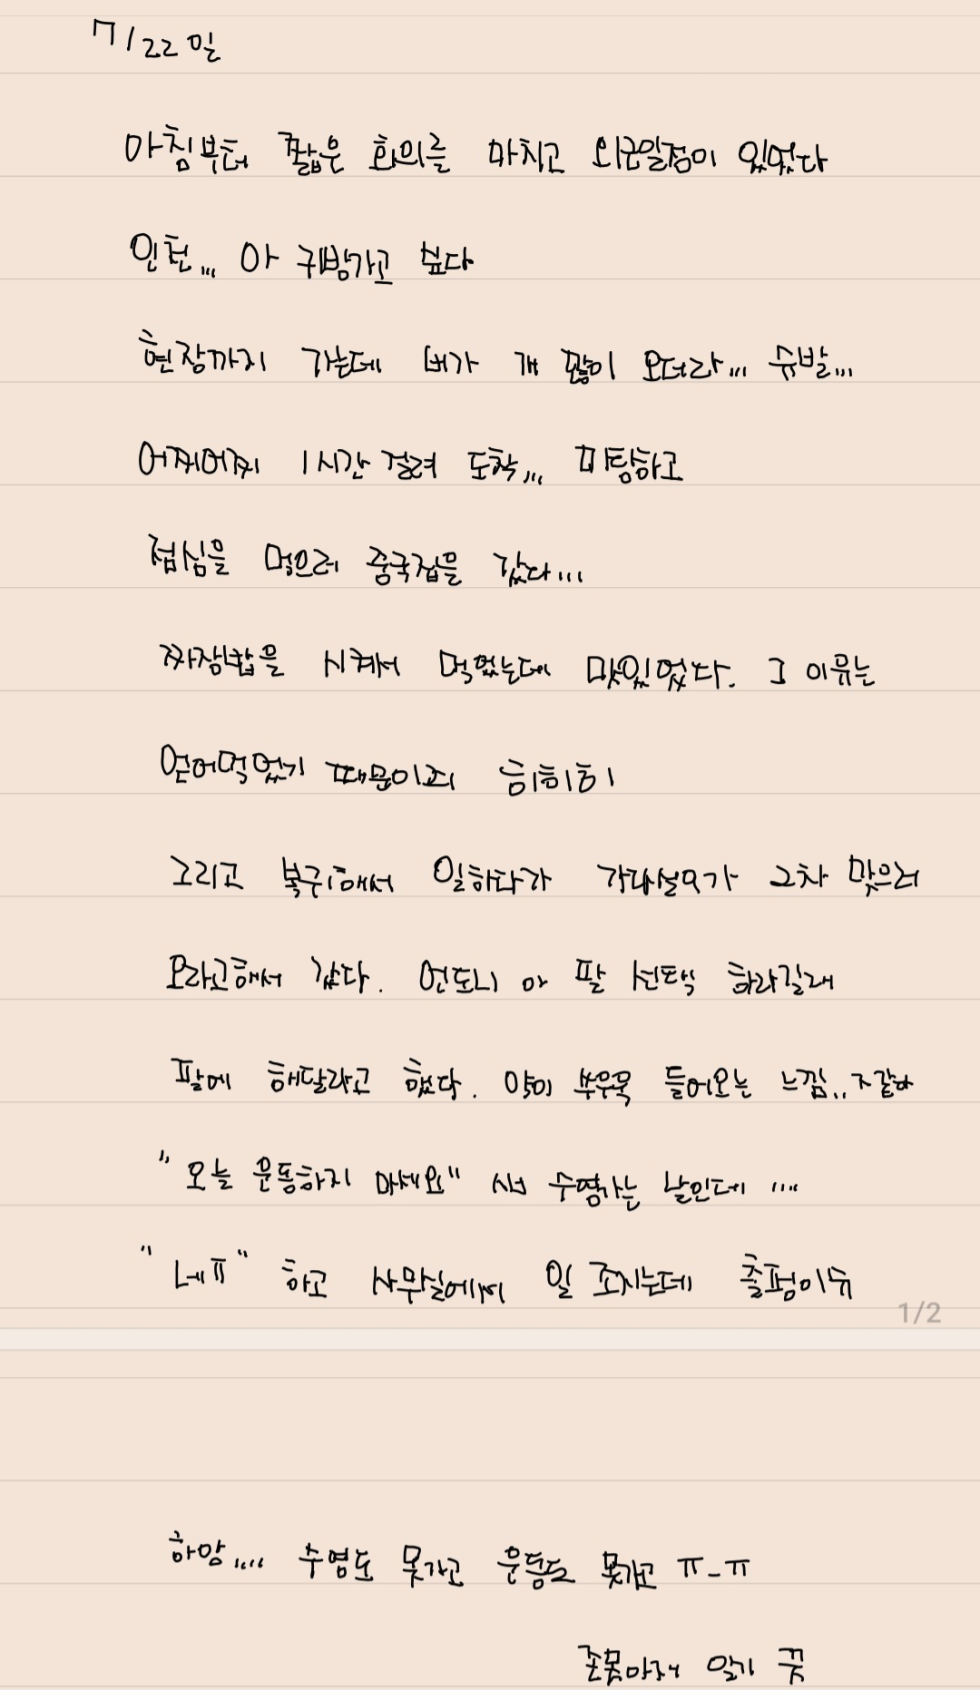 7/22일
아침부터 짧은 회의를 마치고 외근일정이 있었다
인천... 아 귀방가고 싶다
현장까지 가는데 비가 개 많이 오더라... 슈발...
어찌어찌 1시간 걸려 도착... 미팅하고
점심을 먹으러 중국집을 갔다...
짜장밥을 시켜서 먹었는데 맛있었다. 그 이유는
얻어먹었기 때문이죄 히히히
그리고 복귀해서 일하다가 2차 맞으러
오라고해서 갔다. 언도니 아 팔 선택 하라길래
팔에 해달라고 했다. 약이 쑤우욱 들어오는 느낌..
"오늘 운동하지 마세요" 수영가는 날인데 ....
"네ㅠ" 하고 사무실에서 일 조지는데 졸펑이슈
1/2
하앙.... 수영도 못가고 운동도 못가고 ㅠ_ㅠ
일기 끗